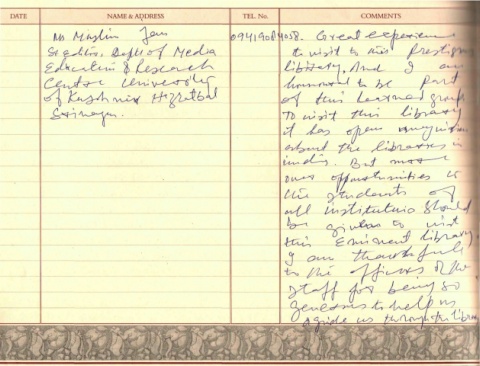 DATE
NAME & ADDRESS
TEL. No.
COMMENTS
Ms Muslim Jan
Sr editor, Deptt of Media
Education & Research
Centre University
of Kashmir Hazratbal
Srinagar.
Great experience
to visit to this Prestigious
library. And I am
honoured to be part
of this learned group
to visit this library
it has open
about the libraries in
india. But more
over opportunities to
the students of
all institutions should
be given to visit
this Eminent library.
I am thankful
to the officers of the
staff for being so
generous to help us
& guide us through the library